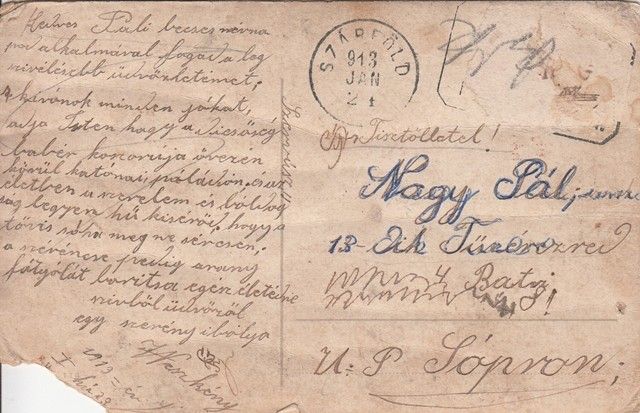 Kedves Pali becses névna
pod alkalmával fogad a leg
szivélésebb üdvözletemet,
kivánok minden jókat,
adja Isten hogy a dicsőség
babér koszorúja övezen
körül katonai páládon, és az
életben a szerelem és boldog
ság legyen hű kisérőd, hogy a
tövis soha meg ne sércsen,
a szerencse pedig arany
fátyolát boritsa egész életedre
szivből üdvözöl
egy szerény ibolya
1913
SZÁRFÖLD
913
JAN
21
Tisztölletel!
Nagy Pál
13-dik Tüzér ezred
4 Bat
U. P Sópron,